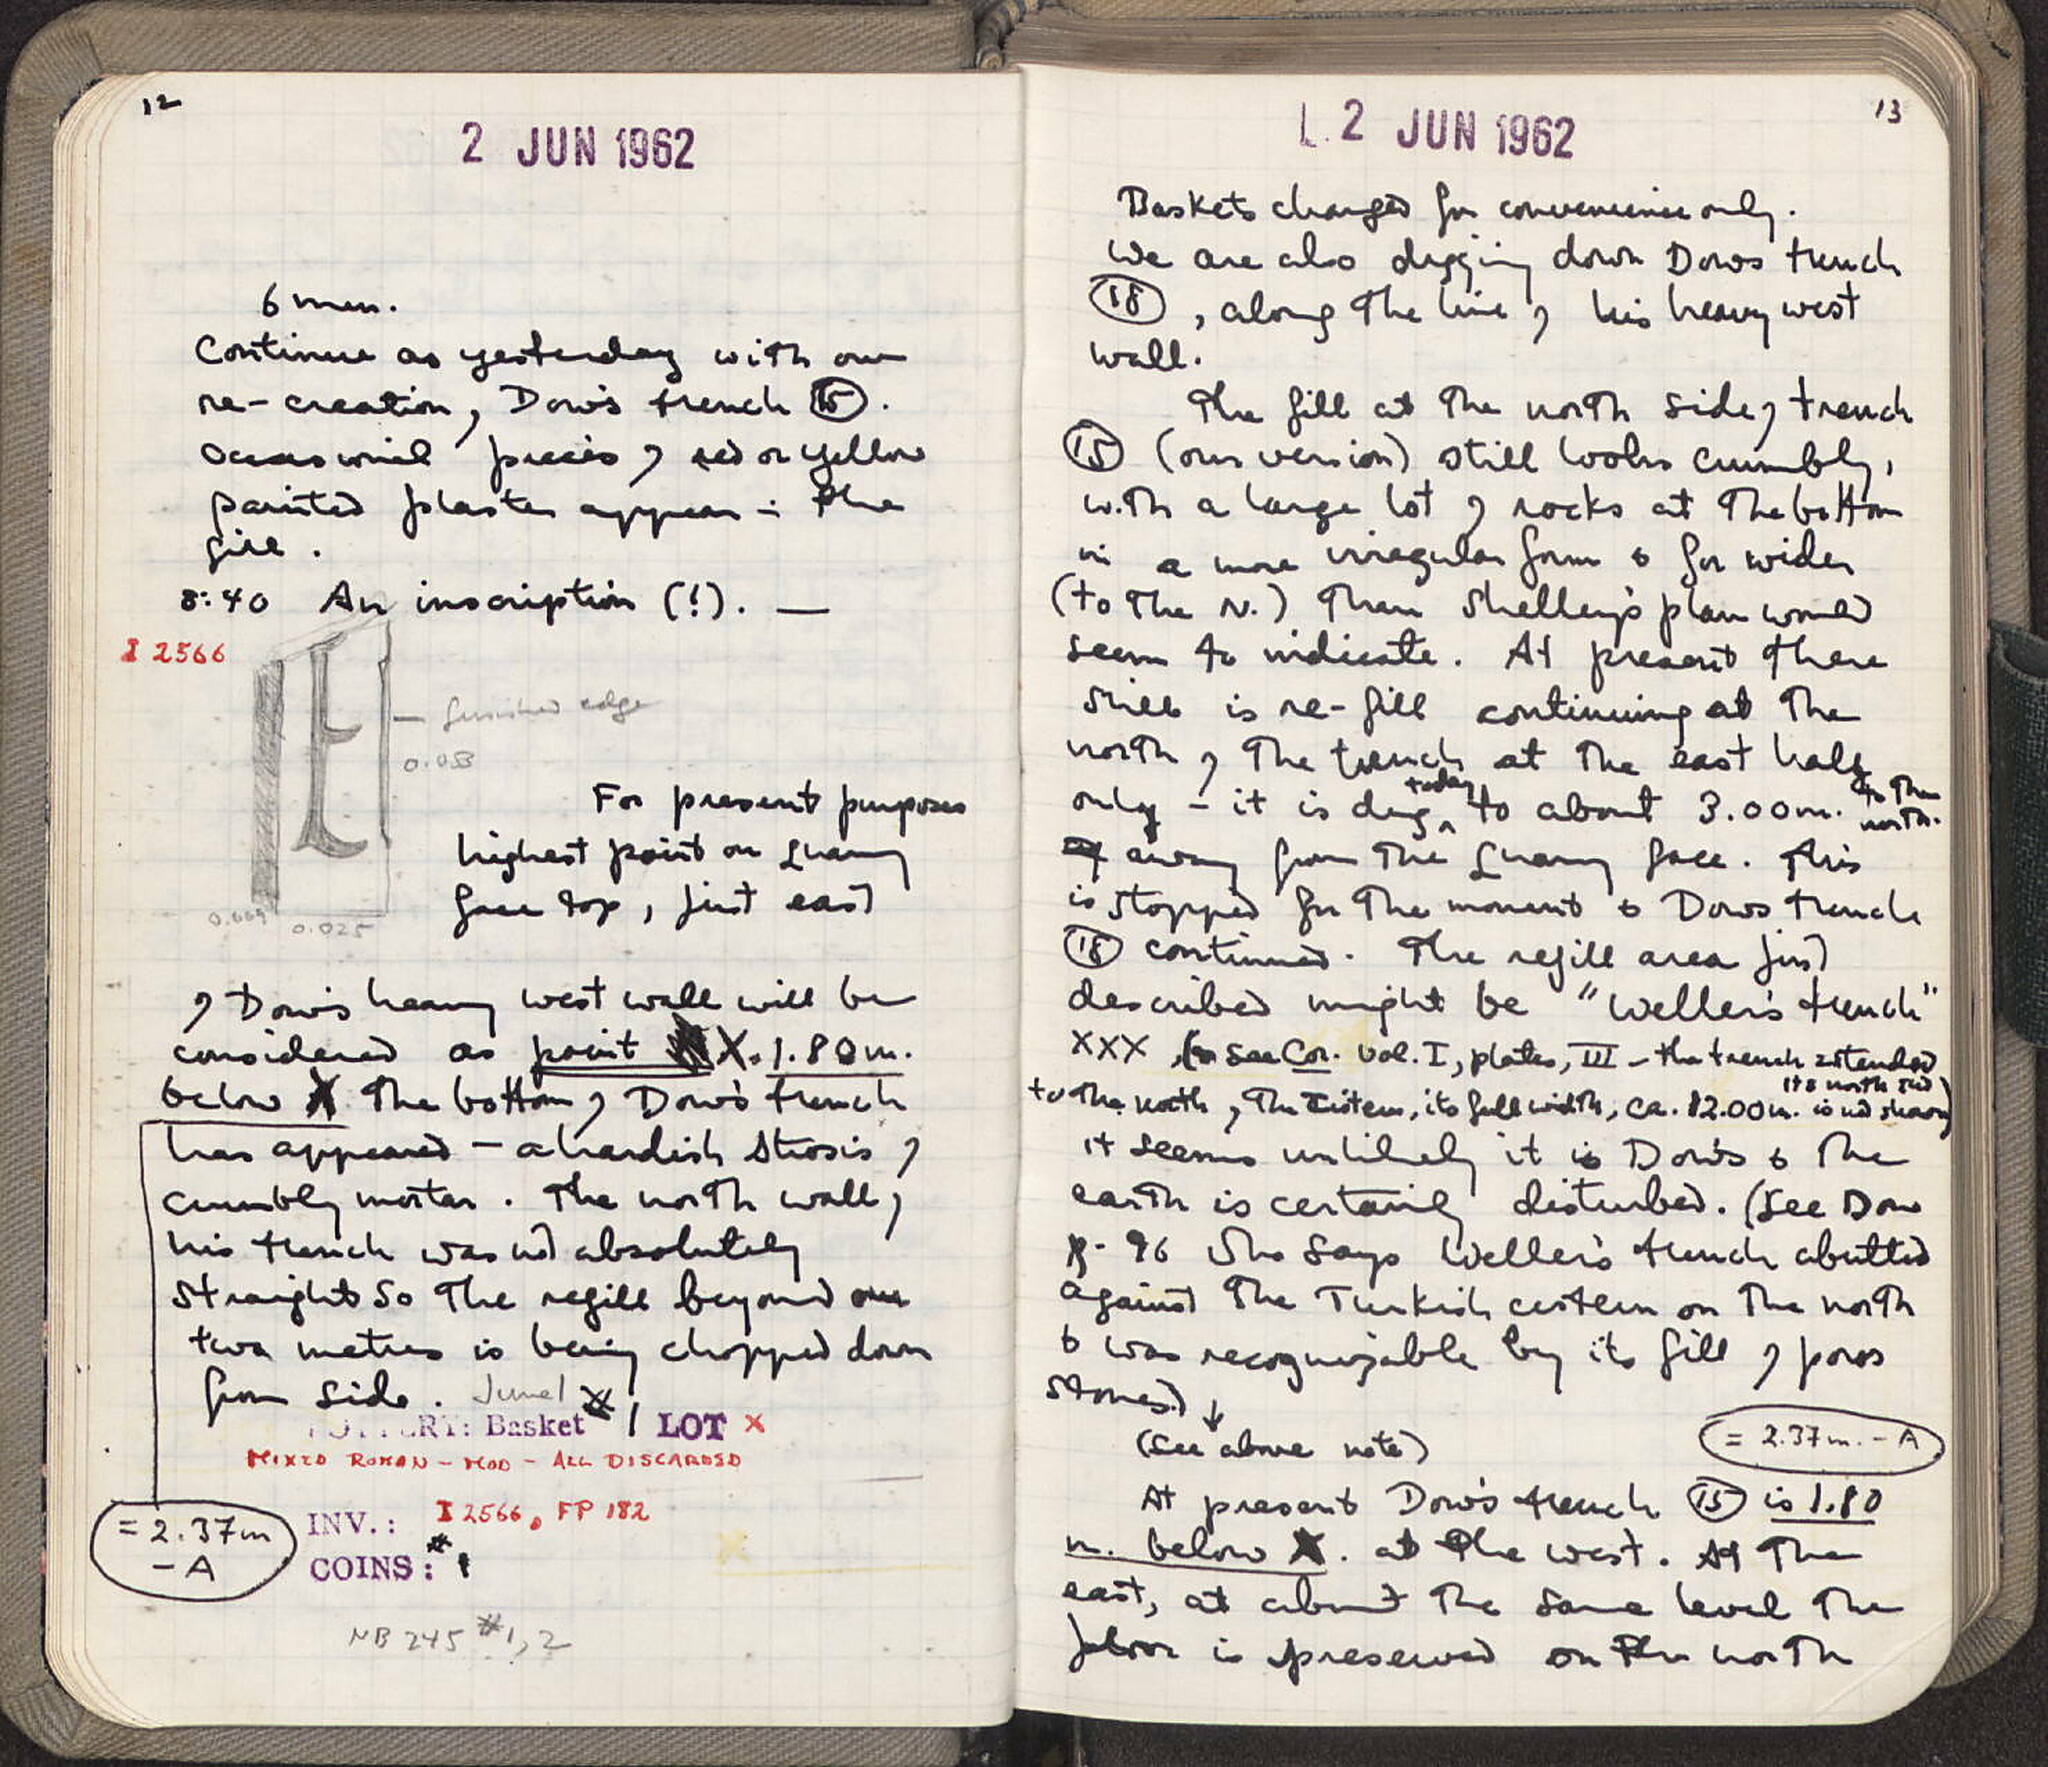 12
2 JUN 1962
6 men.
Continue as yesterday with our
re-creation, Dow's trench (15).
Occasional pieces of red or yellow
painted plaster appear in the
fill.
8:40 An inscription (!). —
I 2566
— finished edge
0.053
0.069
0.025
For present purposes
highest point on quarry
face top, just east
of Dow's heavy west wall will be
considered as point X. 1.80 m.
below X the bottom of Dow's trench
has appeared – a hardish strosis of
crumbly mortar. The north wall of
his trench was not absolutely
straight so the refill beyond our
two metres is being chopped down
from side. June 1
POTTERY: Basket 1 LOT X
MIXED ROMAN – MOD – ALL DISCARDED
= 2.37m
– A
INV.: I 2566, FP 182
COINS: #1
NB 245 #1, 2
13
2 JUN 1962
Baskets changed for convenience only.
We are also digging down Dow's trench
(18), along the line of his heavy west
wall.
The fill at the north side of trench
(15) (our version) still looks crumbly,
with a large lot of rocks at the bottom
in a more irregular form & far wider
(to the N.) than Shelley's plan would
seem to indicate. At present there
still is re-fill continuing at the
north of the trench at the east half
only – it is dug today to about 3.00m. to the north.
away from the quarry face. This
is stopped for the moment & Dow's trench
(18) continued. The refill area just
described might be "Weller's trench"
XXX (See Cor. Vol. I, plates, III – the trench extended
to the north of the cistern, its full width, ca. 12.00m. its north end is not shown)
it seems unlikely it is Dow's & the
earth is certainly disturbed. (See Dow
p. 96 who says Weller's trench abutted
against the Turkish cistern on the north
& was recognizable by its fill of poros
stones.) ↓
(see above note)
= 2.37m. – A
At present Dow's trench (15) is 1.80
m. below X. at the west. At the
east, at about the same level the
floor is preserved on the north